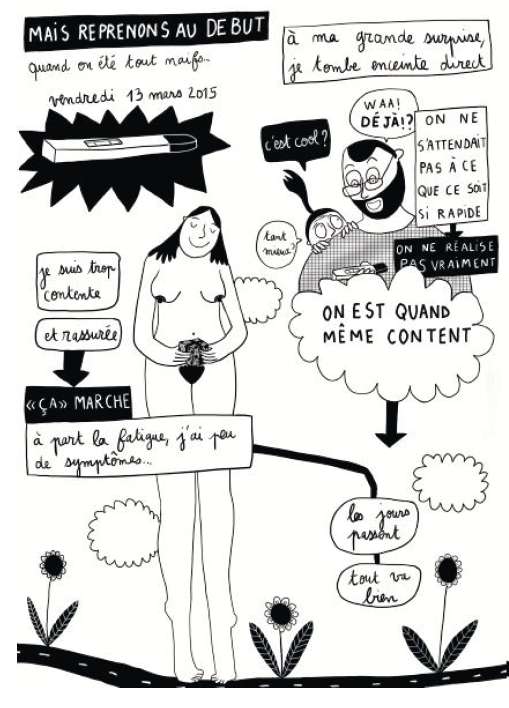 MAIS REPRENONS AU DEBUT
quand on été tout naifs...
vendredi 13 mars 2015
à ma grande surprise,
je tombe enceinte direct
WAA!
DÉJÀ!?
c'est cool?
ON NE
S'ATTENDAIT
PAS À CE
QUE CE SOIT
SI RAPIDE
tant
mieux?
ON NE RÉALISE
PAS VRAIMENT
ON EST QUAND
MÊME CONTENT
je suis trop
contente
et rassurée
«ÇA» MARCHE
à part la fatigue, j'ai peu
de symptômes...
les jours
passent
tout va
bien